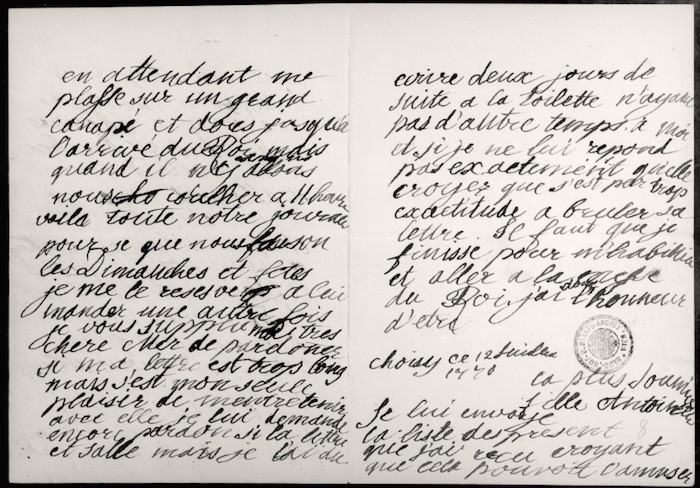 en attendant me
plasse sur un grand
canapé et dors jusqua
l'arrivé du Roi mais
quand il n'y est pas
nous coucher a 11 heure
voila toute notre journée
pour se que nous fauson
les Dimanches et fetes
je me le reserve a lui
mander une autre fois
je vous supplie ma tres
chere Mer de pardonner
si ma lettre est trop long
mais s'est mon seule
plaisir de m'entretenir
avec elle je lui demande
encore pardon si la lettre
et salle mais je l'ai du
ecrire deux jours de
suite a la toilette n'ayant
pas d'auttre temps a moi
et si je ne lui repond
pas exactement qu'elle
croyez que s'est par trop
exactitude a bruler sa
lettre. Il faut que je
finisse pour m'habiller
et aller a la messe
du Roi j'ai donc l'honneur
d'etre
choisy ce 12 Juillet
1770
la plus soumise
fille Antoinette
Je lui envoye
la liste des present
que j'ai recu croyant
que cela pouvoit l'amuser